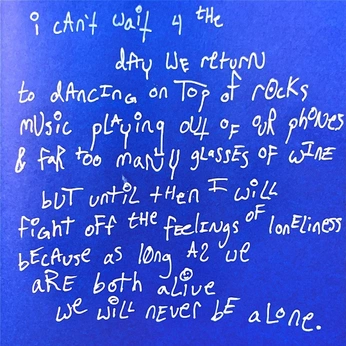 i cAn't wait 4 thE
dAy WE rEturN
to dANcING on Top of rOcks
music plAyiNg out oF OUR phoNes
& fAR too maNy glAssEs of wiNE
buT until thEn I will
fight off thE fEEliNgs of loNEliNEss
bEcAusE as lONg AS wE
aRE both alivE
wE will NEvER bE aloNE.